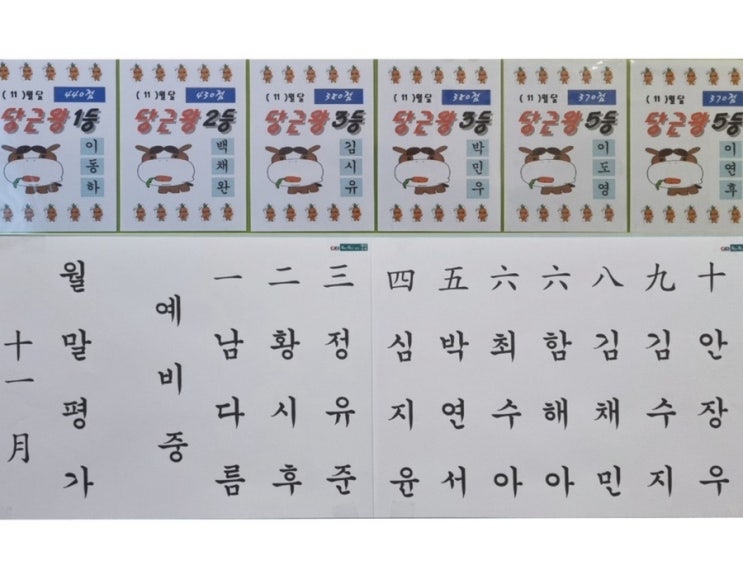 (11)월달 440점
당근왕 1등
이동하
(11)월달 430점
당근왕 2등
백채완
(11)월달 380점
당근왕 3등
김시유
(11)월달 380점
당근왕 3등
박민우
(11)월달 370점
당근왕 5등
이도영
(11)월달 370점
당근왕 5등
이연후
十一月
월말평가
예비중
一 남다름
二 황시후
三 정유준
四 심지윤
五 박연서
六 최수아
六 함해아
八 김채민
九 김수지
十 안장우